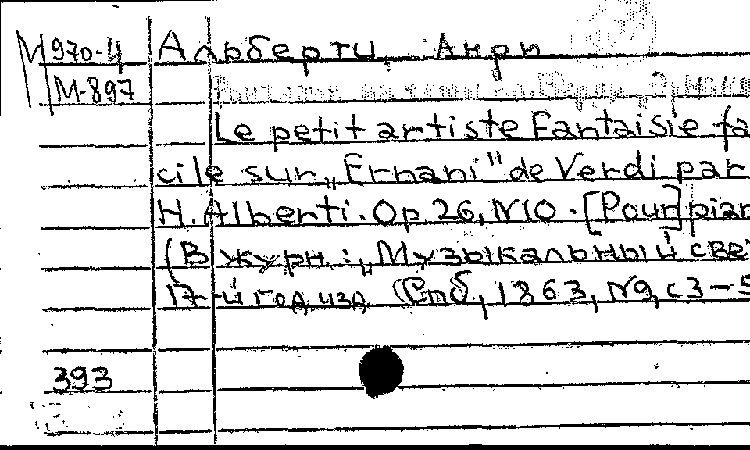 М 970-4 Альберти, Анри
М-897
Le petit artiste Fantaisie fa
cile sur „Ernani" de Verdi par
H. Alberti. Op. 26, N10. [Pour] pian
(В журн.: „Музыкальный све
17-й год изд. (Спб, 1863, N9, с 3-5
393